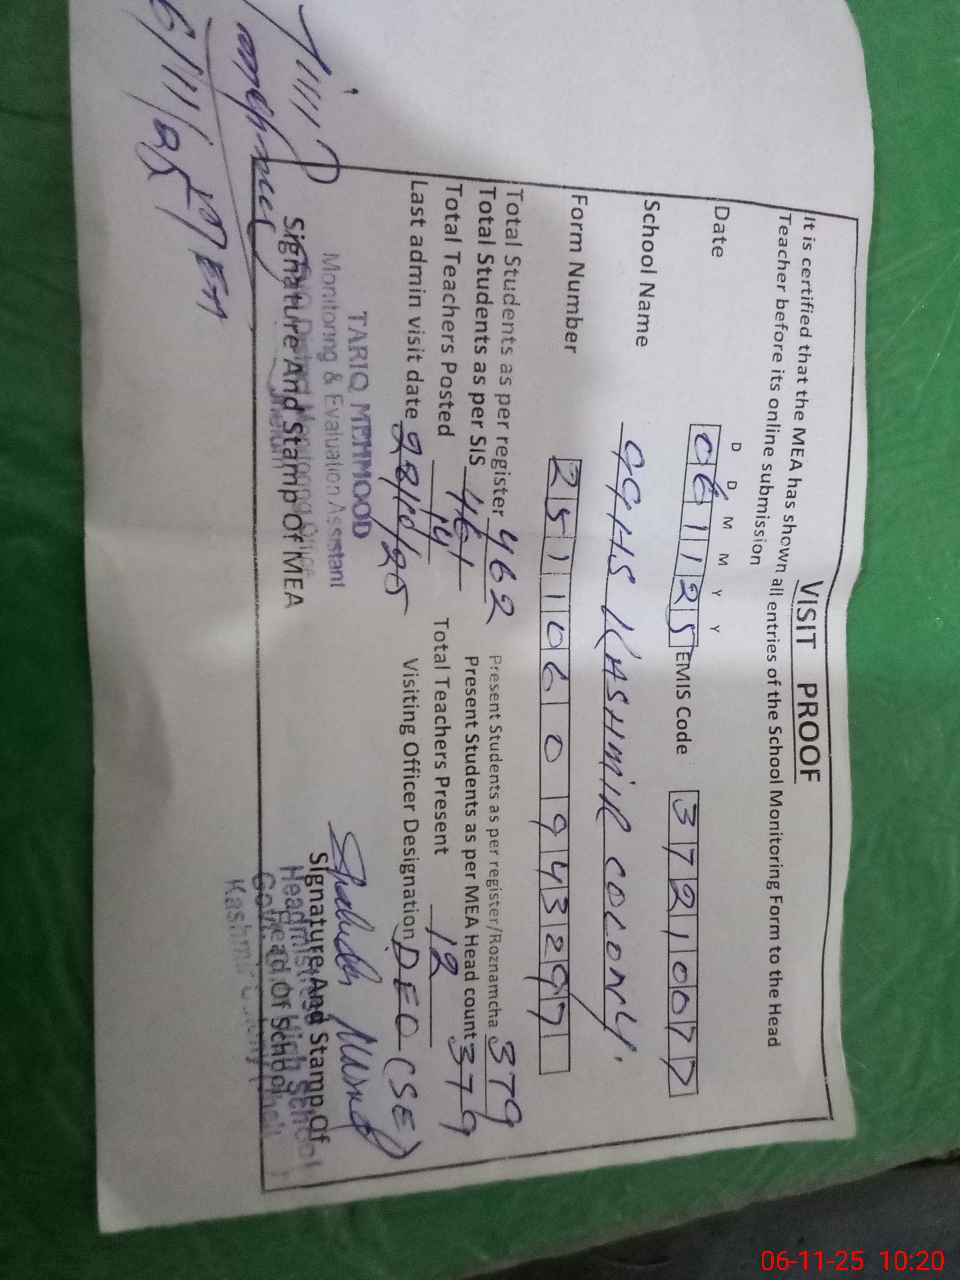 VISIT PROOF
It is certified that the MEA has shown all entries of the School Monitoring Form to the Head
Teacher before its online submission
D D M M Y Y
Date 061125 EMIS Code 37210077
School Name GGHS KASHMIR COLONY.
Form Number 2511060943297
Total Students as per register 462 Present Students as per register/Roznamcha 379
Total Students as per SIS 461 Present Students as per MEA Head count 379
Total Teachers Posted 14 Total Teachers Present 12
Last admin visit date 28/10/25 Visiting Officer Designation DEO (SE)
TARIQ MEHMOOD
Monitoring & Evaluation Assistant
Signature And Stamp Of MEA
Signature And Stamp Of
Head Of School
Headmistress
High School
MEA
6/11/25
06-11-25 10:20